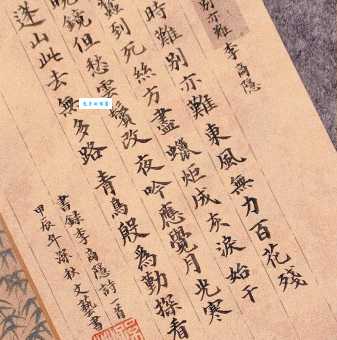 别亦難李商隱
時難别亦難東風無力百花殘
蠶到死絲方盡蠟炬成灰淚始干
曉鏡但愁雲鬢改夜吟應覺月光寒
蓬山此去無多路青鳥殷為勤探看
書錄李商隱詩一首
甲辰年深秋文藝書